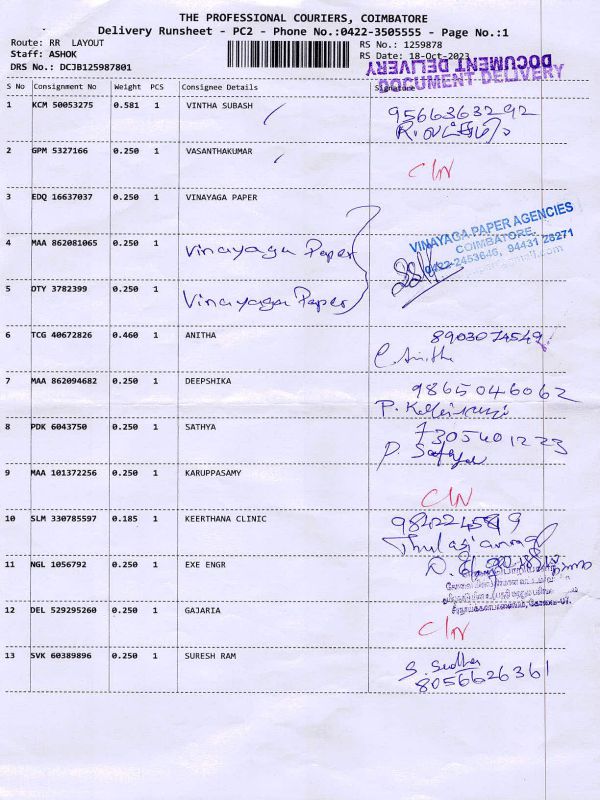 THE PROFESSIONAL COURIERS, COIMBATORE
Delivery Runsheet - PC2 - Phone No.:0422-3505555 - Page No.:1
Route: RR LAYOUT RS No.: 1259878
Staff: ASHOK RS Date: 18-Oct-2023
DRS No.: DCJB125987801
DOCUMENT DELIVERY
DOCUMENT DELIVERY
S No Consignment No Weight PCS Consignee Details Signature
1 KCM 50053275 0.581 1 VINTHA SUBASH 9566363292
2 GPM 5327166 0.250 1 VASANTHAKUMAR
3 EDQ 16637037 0.250 1 VINAYAGA PAPER
VINAYAGA PAPER AGENCIES
COIMBATORE.
0422-2453646, 94431 26271
4 MAA 862081065 0.250 1 Vinayaga Paper
5 OTY 3782399 0.250 1 Vinayaga Paper
6 TCG 40672826 0.460 1 ANITHA 8903074549
C. Anitha
7 MAA 862094682 0.250 1 DEEPSHIKA 9865046062
8 PDK 6043750 0.250 1 SATHYA 7305401223
P. Sathya
9 MAA 101372256 0.250 1 KARUPPASAMY
10 SLM 330785597 0.185 1 KEERTHANA CLINIC
11 NGL 1056792 0.250 1 EXE ENGR
12 DEL 529295260 0.250 1 GAJARIA
13 SVK 60389896 0.250 1 SURESH RAM S. Sudha
8056626361